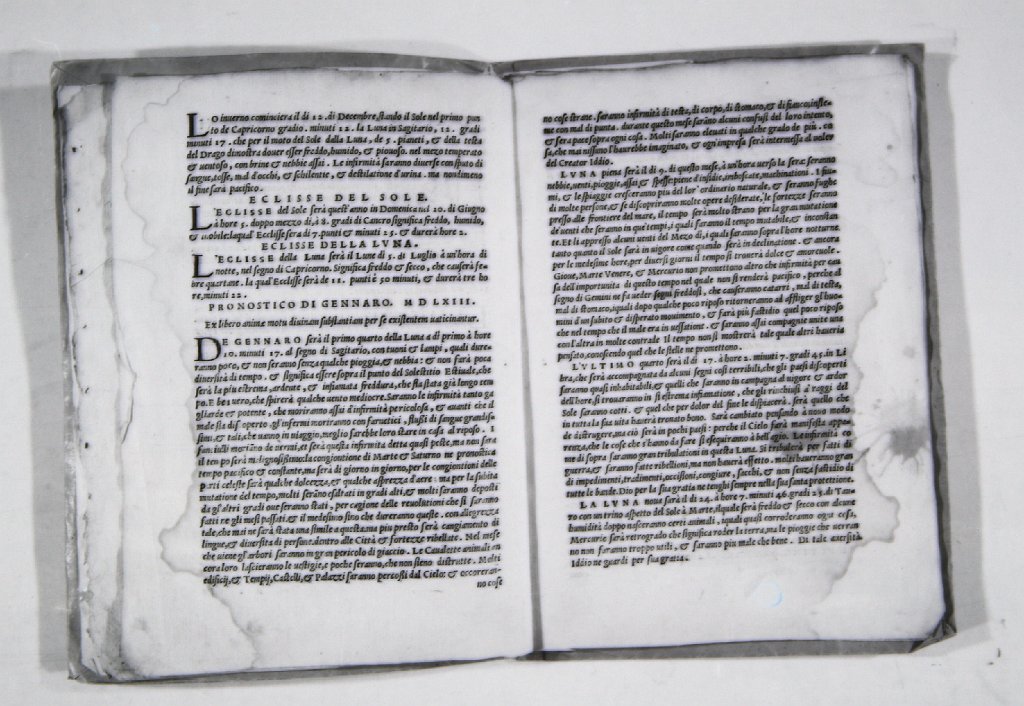 LO inuerno cominciera il di 12. di Decembre, stando il Sole nel primo pun
to de Capricorno gradio. minuti 22. la Luna in Sagitario, 12. gradi
minuti 17. che per il moto del Sole della Luna, de 5. pianeti, & della testa
del Drago dimostra douer esser freddo, humido, & piouoso. nel mezo temperato
& uentoso, con brine & nebbie assai. Le infirmità saranno diuerse con sputo di
sangue, tosse, mal d'occhi, & schilentie, & destilatione d'urina. ma nondimeno
il fine sarà pacifico.
ECLISSE DEL SOLE.
L'ECLISSE del Sole serà quest'anno in Domenica nel 20. di Giugno
à hore 5. doppo mezo dì, à 8. gradi di Cancro significa freddo, humido,
& nobile: laqual Ecclisse sera di 7. punti & minuti 25. & durerà hore 2.
ECLISSE DELLA LVNA.
L'ECLISSE della Luna serà il Lune di 5. di Luglio à un'hora di
notte, nel segno di Capricorno. Significa freddo & secco, che causerà fe-
bre quartane. la qual Ecclisse serà de 11. punti è 50 minuti, & durerà tre ho
re, minuti 22.
PRONOSTICO DI GENNARO. MDLXIII.
Ex libero animæ motu diuinam substantiam per se existentem uaticinantur.
DE GENNARO serà il primo quarto della Luna a dì primo à hore
10. minuti 17. al segno di Sagitario, con tuoni & lampi, quali dure-
ranno poco, & non seranno senza qualche pioggia, & nebbia: & non farà poca
diuersità di tempo. & significa essere sopra il punto del Solestitio Estiuale, che
serà la piu estrema, ardente, & infiamata freddura, che sia stata già longo tem
po. E ben uero, che spirerà qualche uento mediocre. Saranno le infirmità tanto ga
gliarde & potente, che moriranno assai d'infirmità pericolosa, & auanti che il
male sia discoperto, gl'infermi moriranno con farnetici, flussi di sangue grandis-
simi, & tali, che uanno in uiaggio, meglio sarebbe loro stare in casa al riposo. I
fanciulli morirāno de uermi, et serà questa infirmità detta quasi peste, ma non sarà
il tempo serà malignosissimo: la congiontione di Marte & Saturno ne pronostica
tempo pacifico & constante, ma serà di giorno in giorno, per le congientioni delle
parti celeste sarà qualche dolcezza, & qualche asprezza d'aere: ma per la subita
mutatione del tempo, molti serāno esaltati in gradi alti, & molti saranno deposti
da gl'altri gradi oue seranno stati, per cagione delle reuolutioni che si saranno
fatti ne gli mesi passati, & il medesimo sino che dureranno queste. con allegrezza
tale, che mai ne sarà stata una simile a questa. ma piu presto serà cangiamento di
lingue, & diuersità di persone, dentro alle Città & fortezze ribellate. Nel mese
che uiene gl'arbori seranno in gran pericolo di giaccio. Le Caudette animali an
cora loro lascieranno le uestigie, e poche seranno, che non sieno distrutte. Molti
edificij, & Tempij, Castelli, & Palazzi saranno percossi dal Cielo: & occoreran-
no cose
no cose strane. saranno infirmità di testa, di corpo, di stomaco, & di fianco, insie-
me con mal di punta. durante questo mese sarāno alcuni confusi del loro intento,
& sera pace sopra ogni cosa. Molti saranno eleuati in qualche grado de più. co
sa, che mai nissuno l'hauerebbe imaginato, & ogni impresa serà intermessa al uoler
del Creator Iddio.
LVNA piena serà il di 9. di questo mese, à un'hora uerso la sera: seranno
nebbie, uenti, pioggie, assai, & spesse: piene d'insidie, imboscate, machinationi. I fiumi,
& le spiaggie cresceranno piu del lor' ordinario naturale, & seranno fughe
di molte persone, & se discopriranno molte opere desiderate, le fortezze seranno
presso alle frontiere del mare, il tempo serà molto strano per la gran mutatione
de'uenti che seranno in que'tempi, i quali saranno il tempo mutabile, & inconstan
te. Et li appresso alcuni uenti del Mezo dì, i quali saranno sopra l'hore notturne.
tanto quanto il Sole sarà in uigore come quando serà in declinatione. & ancora
per le medesime hore, per diuersi giorni il tempo si trouerà dolce & amoreuole.
Gioue, Marte Venere, & Mercurio non promettono altro che infirmità per cau
sa dell'importunita di questo tempo nel quale non si renderà pacifico, perche al
segno di Gemini ne fa ueder segni freddosi, che causeranno catarri, mal di testa,
mal di stomaco, iquali dopo qualche poco riposo ritorneranno ad affliger gl'huo-
mini d'un subito & disperato mouimento, & farà più fastidio quel poco riposo
che nel tempo che il male era in uessatione. & saranno assai compagnie unite una
con l'altra in molte contrade. Il tempo non si mostrerà tale quale altri haueria
pensato, conosciendo quel che le stelle ne promettono.
L'VLTIMO quarto serà il di 17. à hore 2. minuti 7. gradi 45. in Li
bra, che serà accompagnata da alcuni segni così terribili, che gli paesi discoperti
saranno quasi inhabitabili, & quelli che saranno in campagna al uigore & ardor
dell'hore, si troueranno in si estrema infiamatione, che gli rinchiusi a' raggi del
Sole saranno cotti. & quel che per dolor del fine le dispiacerà, serà quello che
in tutta la sua uita hauerà tronato bono. Sarà cambiato pensando à nouo modo
de distrugere, ma ciò serà in pochi paesi: perche il Cielo sarà manifesta appa-
renza, che le cose che s'hanno da fare si esequiranno à bell'agio. Le infirmità co
me di sopra saranno gran tribulationi in questa Luna. Si tribulerà per fatti di
guerra, & saranno fatte ribellioni, ma non hauerà effetto. molti haueranno gran
di impedimenti, tradimenti, occisioni, congiure, secchi, & non senza fastidio di
tutte le bande. Dio per la sua gratia ne tenghi sempre nella sua santa protettione.
LA LVNA noua serà il di 24. à hore 7. minuti 46. gradi 25. di Tau
ro con un trino aspetto del Sole à Marte, ilquale serà freddo & secco con alcune
humidità doppo nasceranno certi animali, i quali quasi corroderanno ogni cosa,
Mercurio serà retrogrado che significa roder la terra, ma le pioggie che uerran
no non saranno troppo utili, & saranno più male che bene. Di tale auersità
Iddio ne guardi per sua gratia.